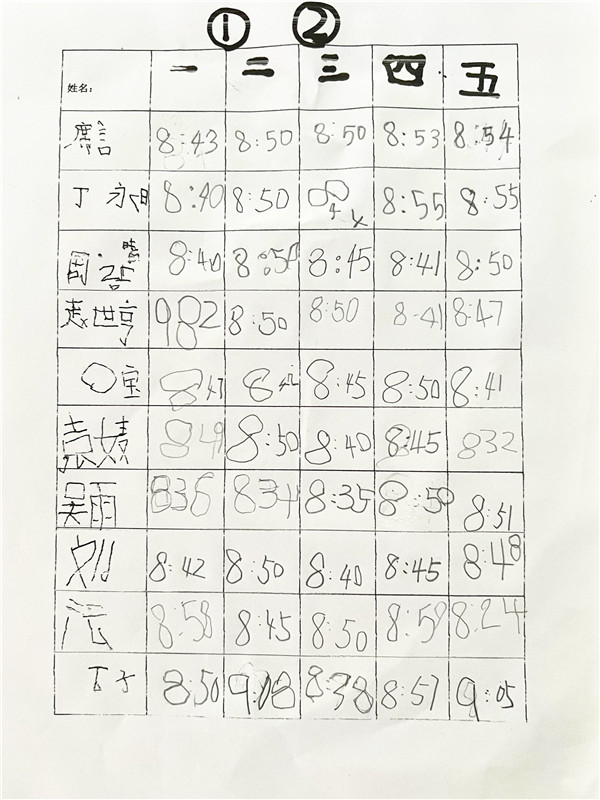 ① ②
姓名: 一 二 三 四 五
言 8:43 8:50 8:50 8:53 8:54
丁 永 8:40 8:50 8:55 8:55
周 晴 8:40 8:50 8:45 8:41 8:50
袁世亨 982 8:50 8:50 8:41 8:47
宝 8:47 8:45 8:50 8:41
袁婧 849 8:50 8:40 8:45 832
吴雨 836 834 8:35 8:50 8:51
刘 8:42 8:50 8:40 8:45 8:48
沅 8:58 8:45 8:50 8:59 8:24
子 8:50 9:08 8:38 8:57 9:05